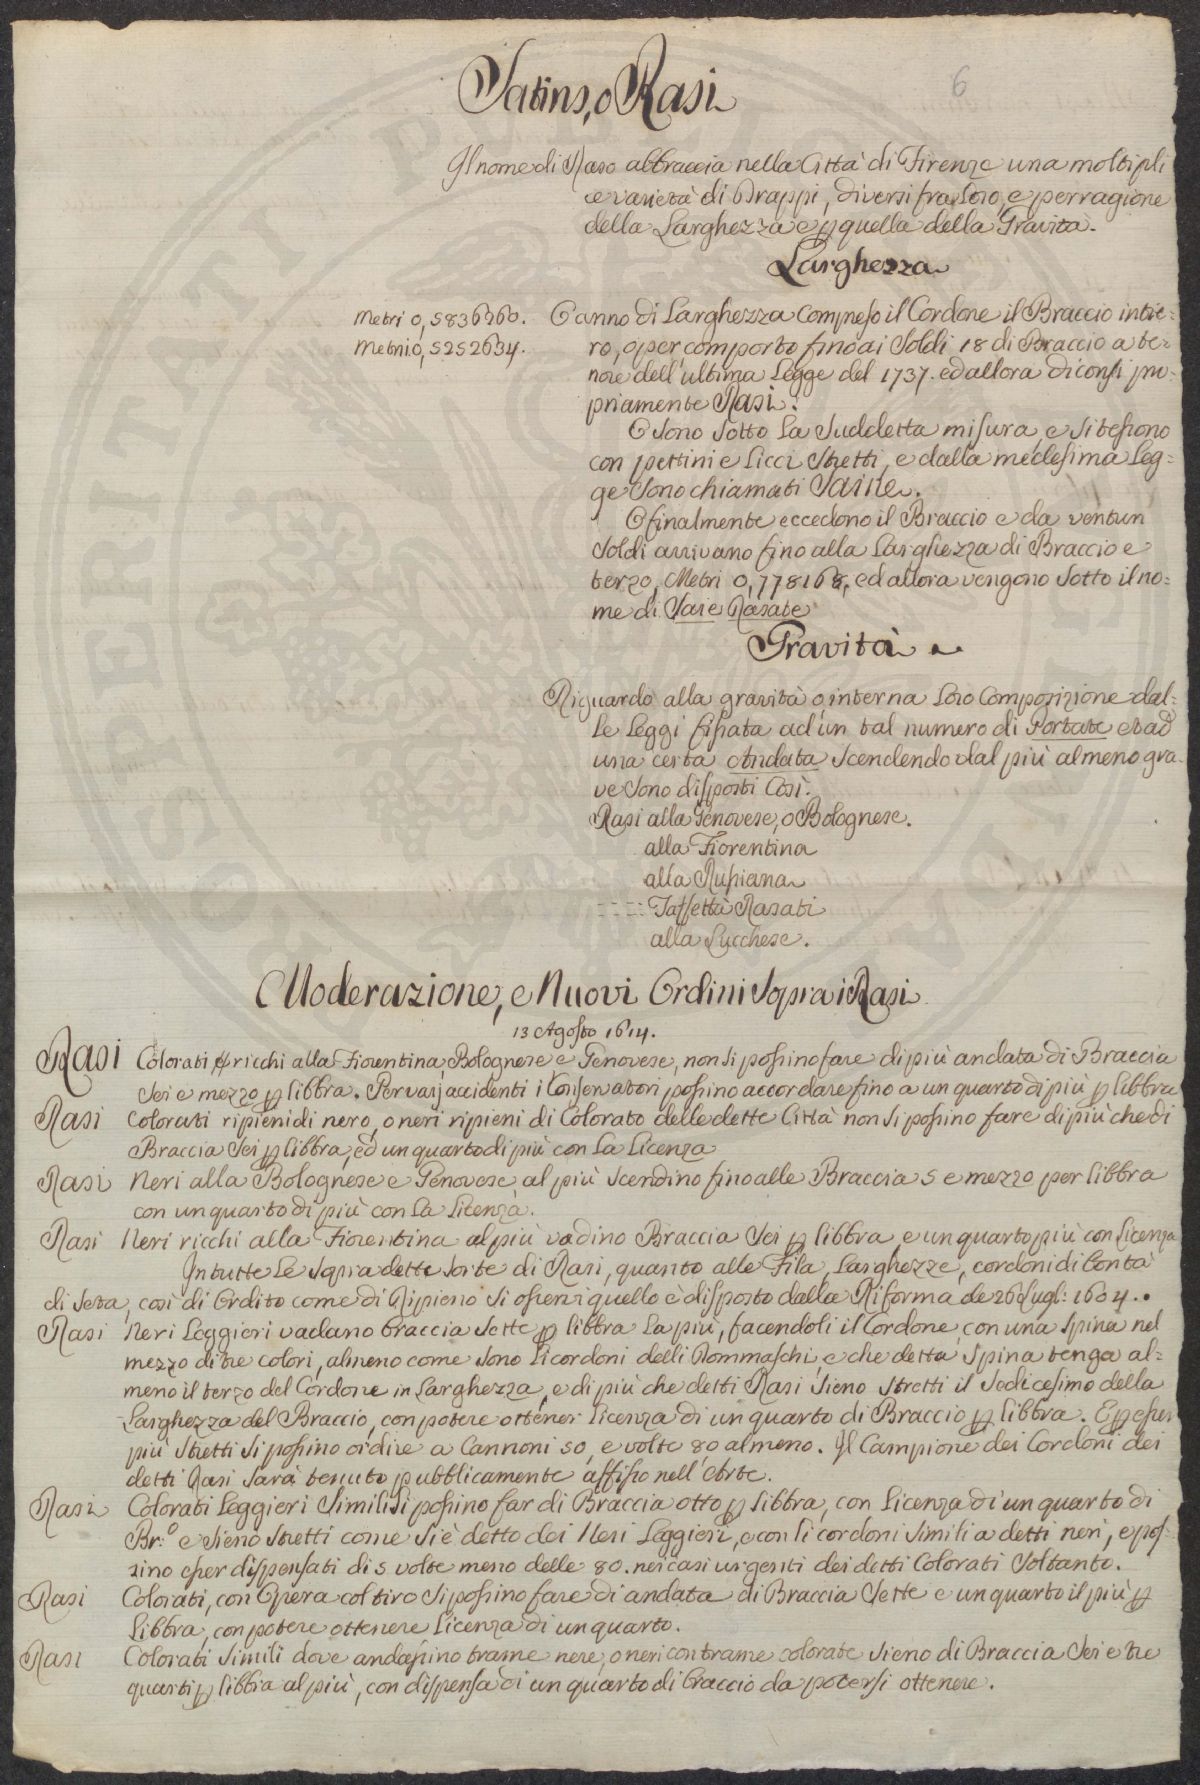 6
Satins, o Rasi
Il nome di Raso abbraccia nella Città di Firenze una moltipli
ce varietà di Drappi, diversi fra Loro, e per ragione
della Larghezza e p quella della Gravità.
Larghezza
Metri 0,5836260. O anno di Larghezza compreso il Cordone il Braccio intie=
Metri 0,5252634. ro, o per comporto fino ai Soldi 18 di Braccio a te=
nore dell'ultima Legge del 1737. ed allora diconsi pro=
priamente Rasi.
O sono sotto la suddetta misura, e si tessono
con pettini e Licci stretti, e dalla medesima Leg=
ge sono chiamati Saine.
O finalmente eccedono il Braccio e da ventun
Soldi arrivano fino alla Larghezza di Braccio e
terzo, Metri 0,778168, ed allora vengono sotto il no=
me di Saie Rasate
Gravità
Riguardo alla gravità o interna Loro Composizione dal=
le Leggi fissata ad un tal numero di Portate et ad
una certa Andata scendendo dal più al meno gra
ve sono disposti Così.
Rasi alla Genovese, o Bolognese.
alla Fiorentina
alla Russiana
Taffettà Rasati
alla Lucchese.
Moderazione, e Nuovi Ordini Sopra i Rasi
13 Agosto 1614.
Rasi Colorati ricchi alla Fiorentina, Bolognese e Genovese, non si possino fare di più andata di Braccia
Sei e mezzo p libbra. Per varj accidenti i Conservatori possino accordare fino a un quarto di più p libbra
Rasi Colorati ripieni di nero, o neri ripieni di Colorato delle dette Città non si possino fare di più che di
Braccia Sei p libbra, ed un quarto di più con La Licenza
Rasi Neri alla Bolognese e Genovese al più scendino fino alle Braccia 5 e mezzo per libbra
con un quarto di più con La Licenza.
Rasi Neri ricchi alla Fiorentina al più vadino Braccia Sei p libbra e un quarto più con Licenza
In tutte Le sopradette sorte di Rasi, quanto alle Fila, Larghezze, cordoni di bontà
di Seta, così di Ordito come di Ripieno si osservi quello è disposto dalla Riforma de 26 Lugl: 1604..
Rasi Neri Leggieri vadano braccia Sette p libbra La più, facendoli il Cordone con una spina nel
mezzo di tre colori, almeno come sono li cordoni delli Dommaschi, e che detta Spina tenga al=
meno il terzo del Cordone in Larghezza, e di più che detti Rasi sieno stretti il sedicesimo della
Larghezza del Braccio, con potere ottener Licenza di un quarto di Braccio p libbra. E p esser
più stretti si possino ordire a Cannoni 50, e volte 80 almeno. Il Campione dei Cordoni dei
detti Rasi sarà tenuto pubblicamente affisso nell'Arte.
Rasi Colorati Leggieri Simili si possino far di Braccia otto p libbra, con Licenza di un quarto di
Br:o e sieno stretti come si è detto dei Neri Leggieri, e con li cordoni simili a detti neri, e pos=
sino esser dispensati di 5 volte meno delle 80. nei casi urgenti dei detti Colorati Soltanto.
Rasi Colorati, con Opera col tiro si possino fare di andata di Braccia Sette e un quarto il più p
Libbra, con potere ottenere Licenza di un quarto.
Rasi Colorati Simili dove andassino trame nere, o neri con trame colorate sieno di Braccia Sei e tre
quarti p libbra al più, con dispensa di un quarto di braccio da potersi ottenere.